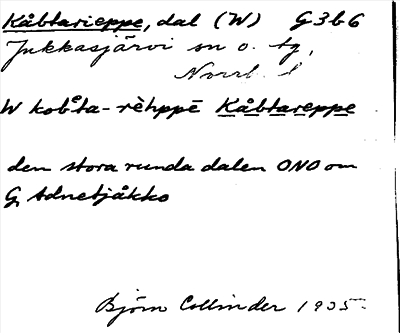 Kåbtarieppe, dal (W) G3b6
Jukkasjärvi sn o. tg,
Norrb. l
W kob̥ta-rèhppē Kåbtareppe
den stora runda dalen ONO om
G, Adnetjåkko
Björn Collinder 1935